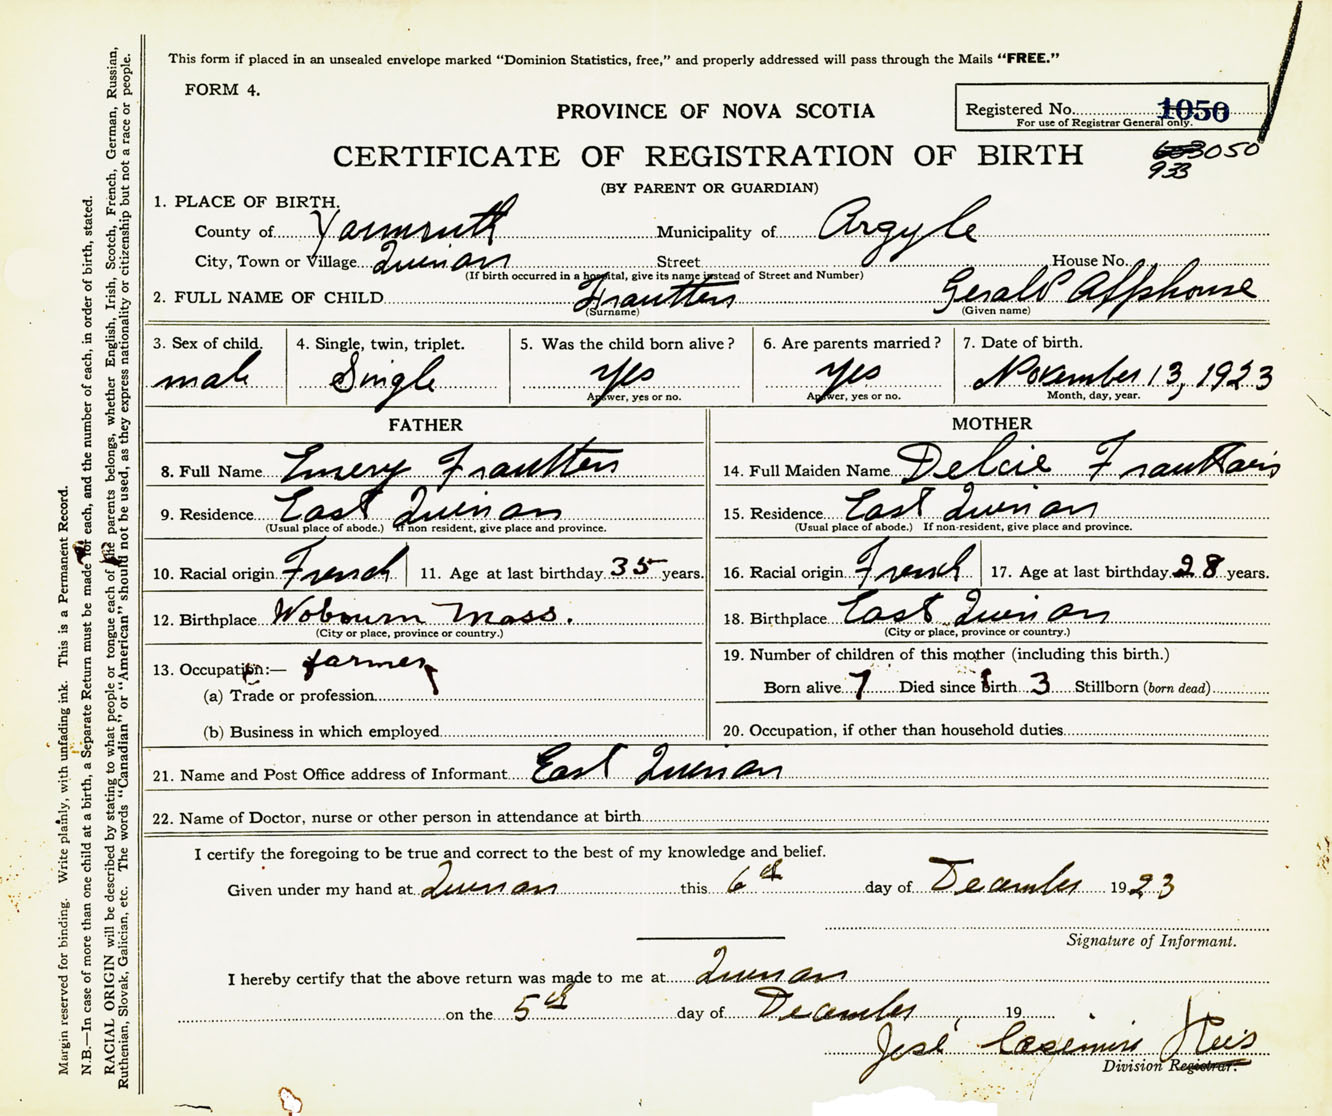 This form if placed in an unsealed envelope marked “Dominion Statistics, free,” and properly addressed will pass through the Mails “FREE.”
FORM 4.
PROVINCE OF NOVA SCOTIA
Registered No. 1050
For use of Registrar General only.
CERTIFICATE OF REGISTRATION OF BIRTH
3050
933
(BY PARENT OR GUARDIAN)
1. PLACE OF BIRTH.
County of Yarmouth Municipality of Argyle
City, Town or Village Quinan Street House No.
(If birth occurred in a hospital, give its name instead of Street and Number)
2. FULL NAME OF CHILD Frautten Gerald Alfphonse
(Surname) (Given name)
3. Sex of child. 4. Single, twin, triplet. 5. Was the child born alive? 6. Are parents married? 7. Date of birth.
male Single yes yes November 13, 1923
Answer, yes or no. Answer, yes or no. Month, day, year.
FATHER MOTHER
8. Full Name Emery Frautten 14. Full Maiden Name Delcie
9. Residence East Quinan 15. Residence East Quinan
(Usual place of abode.) If non resident, give place and province. (Usual place of abode.) If non-resident, give place and province.
10. Racial origin French 11. Age at last birthday 35 years. 16. Racial origin French 17. Age at last birthday 28 years.
12. Birthplace Wobourn Mass. 18. Birthplace East Quinan
(City or place, province or country.) (City or place, province or country.)
13. Occupation:— farmer 19. Number of children of this mother (including this birth.)
(a) Trade or profession Born alive 7 Died since birth 3 Stillborn (born dead)
(b) Business in which employed 20. Occupation, if other than household duties
21. Name and Post Office address of Informant East Quinan
22. Name of Doctor, nurse or other person in attendance at birth
I certify the foregoing to be true and correct to the best of my knowledge and belief.
Given under my hand at Quinan this 6th day of December 1923
Signature of Informant.
I hereby certify that the above return was made to me at Quinan
on the 5th day of December 19
José Casimiro
Division Registrar.
Margin reserved for binding. Write plainly, with unfading ink. This is a Permanent Record.
N.B.—In case of more than one child at a birth, a Separate Return must be made for each, and the number of each, in order of birth, stated.
RACIAL ORIGIN will be described by stating to what people or tongue each of the parents belongs, whether English, Irish, Scotch, French, German, Russian,
Ruthenian, Slovak, Galician, etc. The words “Canadian” or “American” should not be used, as they express nationality or citizenship but not a race or people.